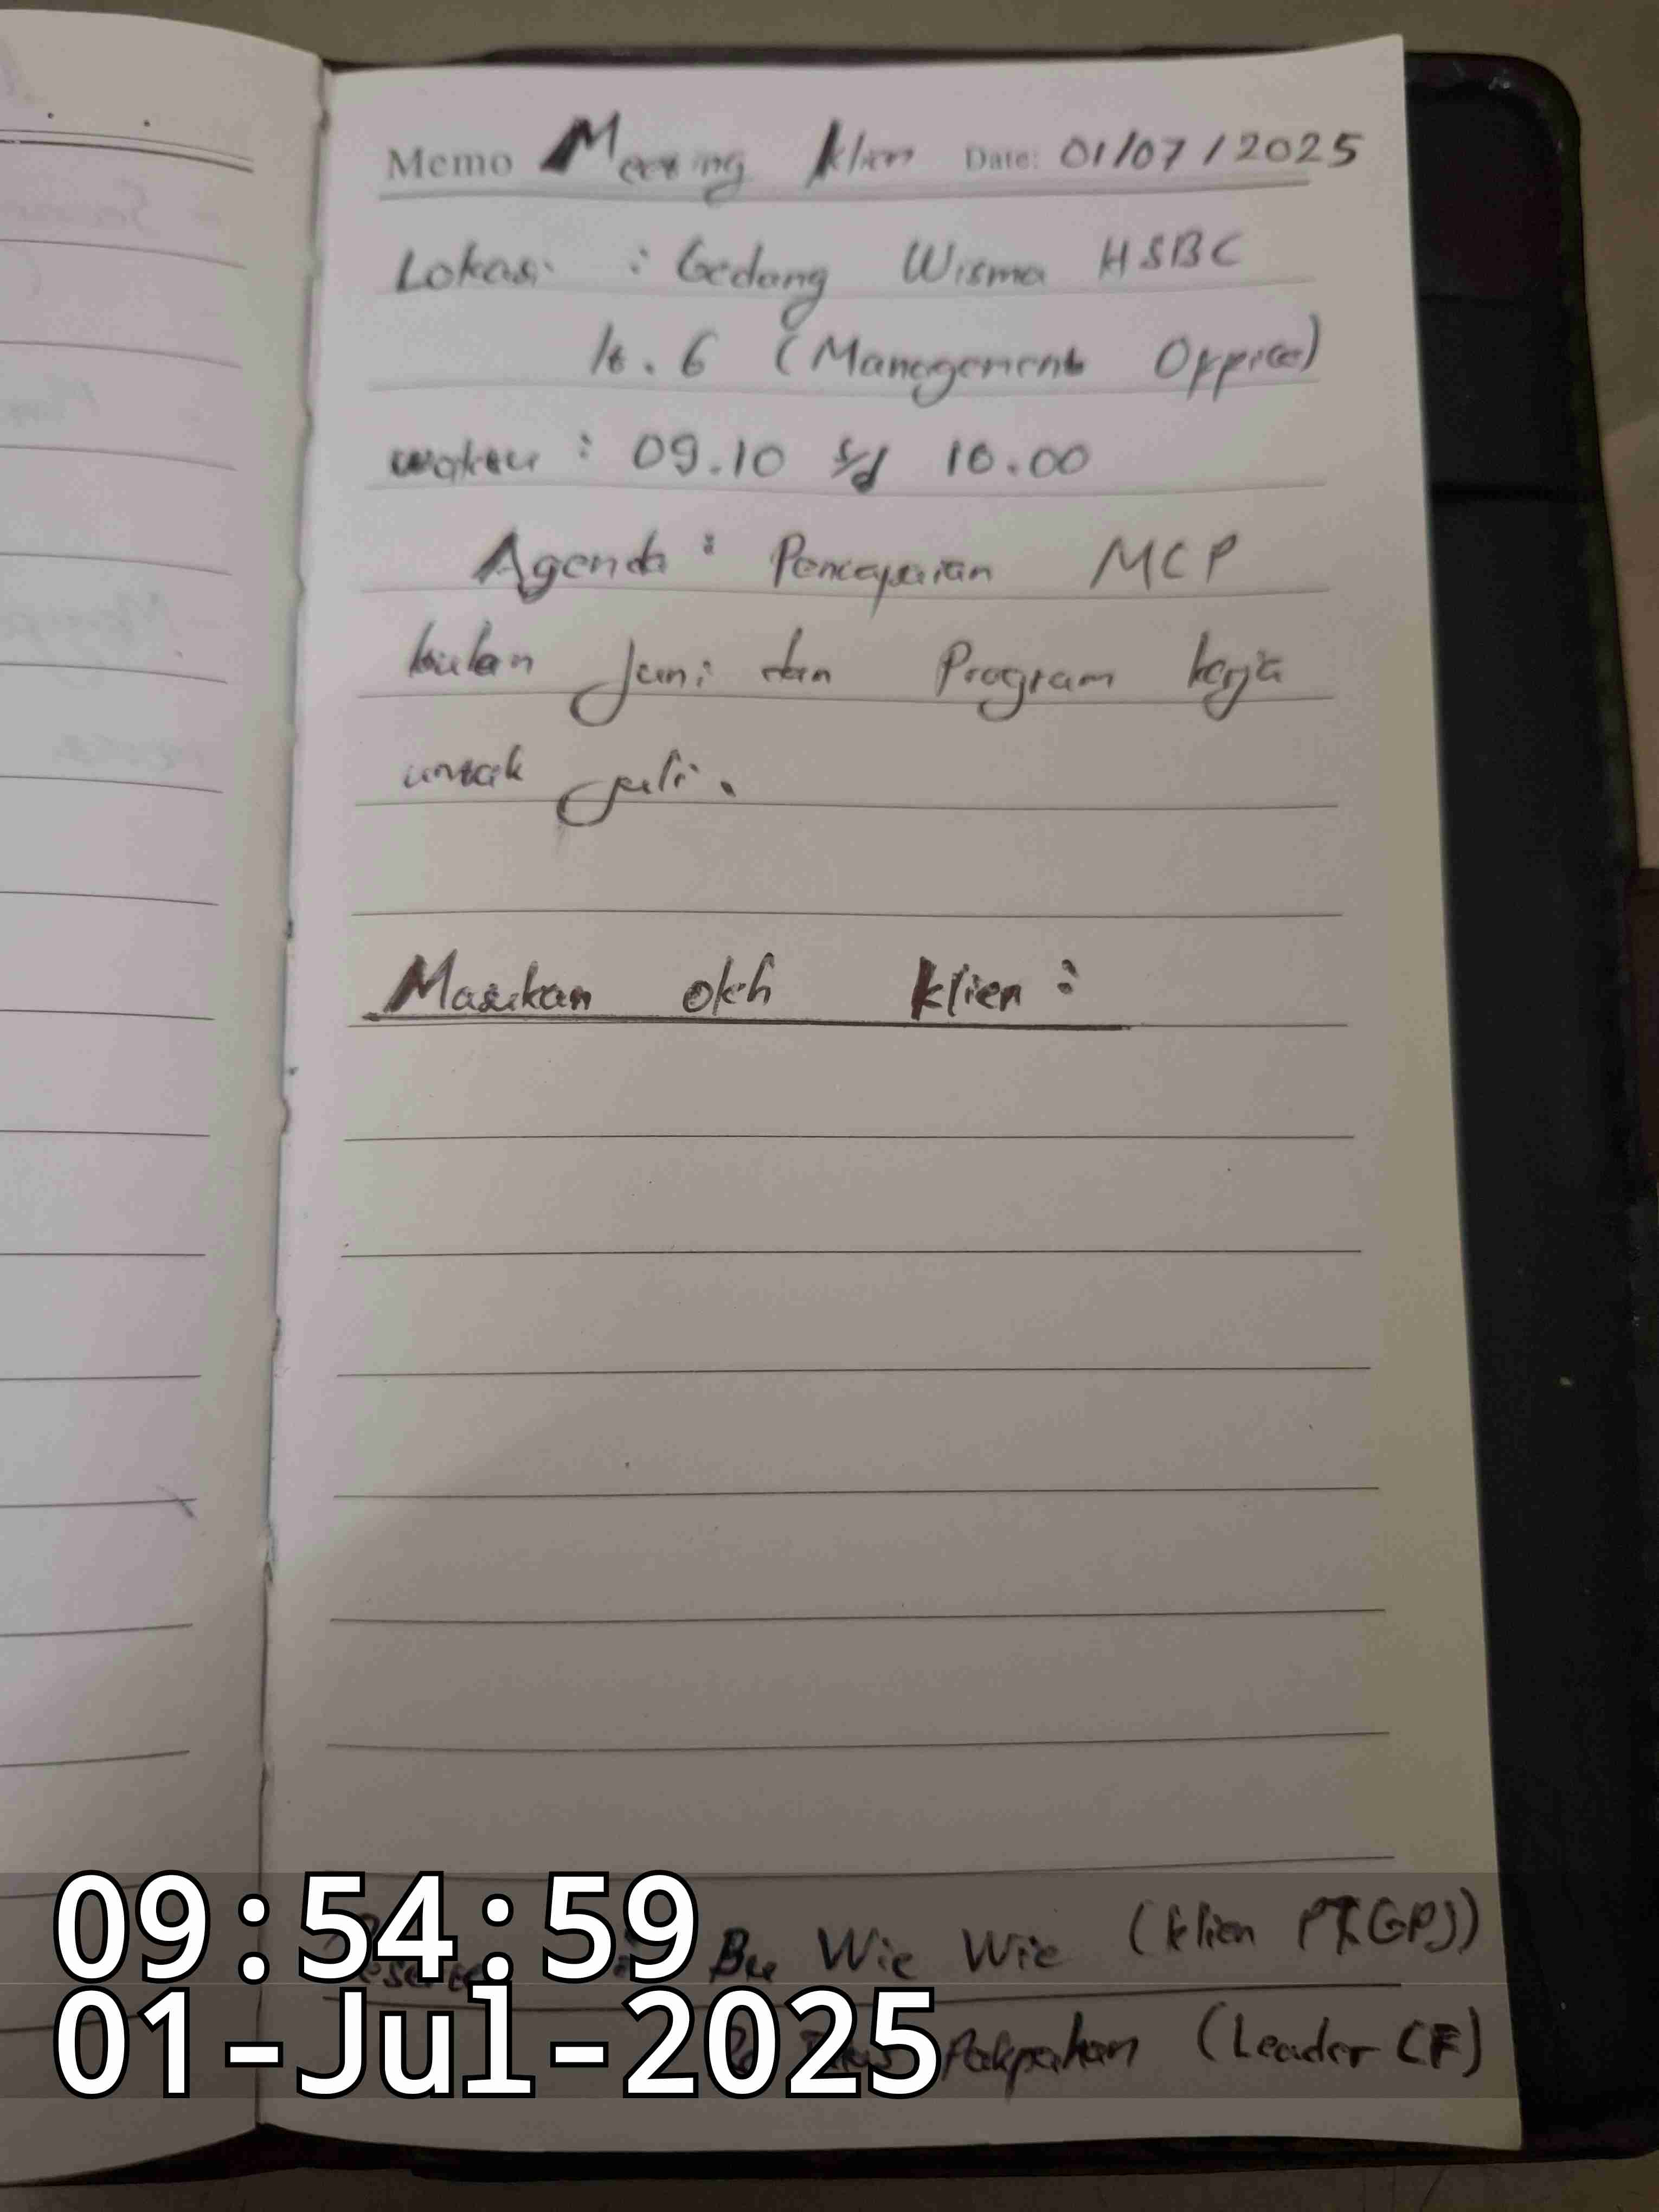 Memo Meeting klien Date: 01/07/2025
Lokasi : Gedung Wisma HSBC
lt. 6 (Management Office)
waktu : 09.10 s/d 10.00
Agenda : Pencapaian MCP
bulan Juni dan Program kerja
untuk Juli.
Masukan oleh klien :
: Bu Wie Wie (klien PT.GPJ)
Pakpahan (Leader CF)
09:54:59
01-Jul-2025